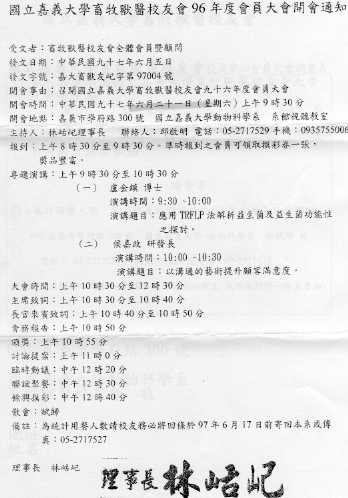 國立嘉義大學畜牧獸醫校友會96年度會員大會開會通知
受文者：畜牧獸醫校友會全體會員暨顧問
發文日期：中華民國九十七年六月五日
發文字號：嘉大畜獸友屺字第97004號
開會事由：召開國立嘉義大學畜牧獸醫校友會九十六年度會員大會
開會時間：中華民國九十七年六月二十一日(星期六)上午9時30分
開會地點：嘉義市學府路300號 國立嘉義大學動物科學系 系館視聽教室
主持人：林峿屺理事長 聯絡人：邱啟明 電話：05-2717529 手機：0935755006
報到：上午8時30分至9時30分。準時報到之會員可領取摸彩券一張，
獎品豐富。
專題演講：上午9時30分至10時30分
(一) 盧金鎮 博士
演講時間：9:30 -10:00
演講題目：應用TRFLP法解析益生菌及益生菌功能性
之探討。
(二) 侯嘉政 研發長
演講時間：10:00 -10:30
演講題目：以溝通的藝術提升顧客滿意度。
大會時間：上午10時30分至12時30分
主席致詞：上午10時30分至10時40分
長官來賓致詞：上午10時40分至10時50分
會務報告：上午10時50分
頒獎：上午10時55分
討論提案：上午11時0分
臨時動議：中午12時20分
聯誼聚餐：中午12時30分
餘興摸彩：中午12時40分
散會：賦歸
備註：為統計用餐人數請校友務必將回條於97年6月17日前寄回本系或傳
真：05-2717527
理事長 林峿屺
理事長林峿屺